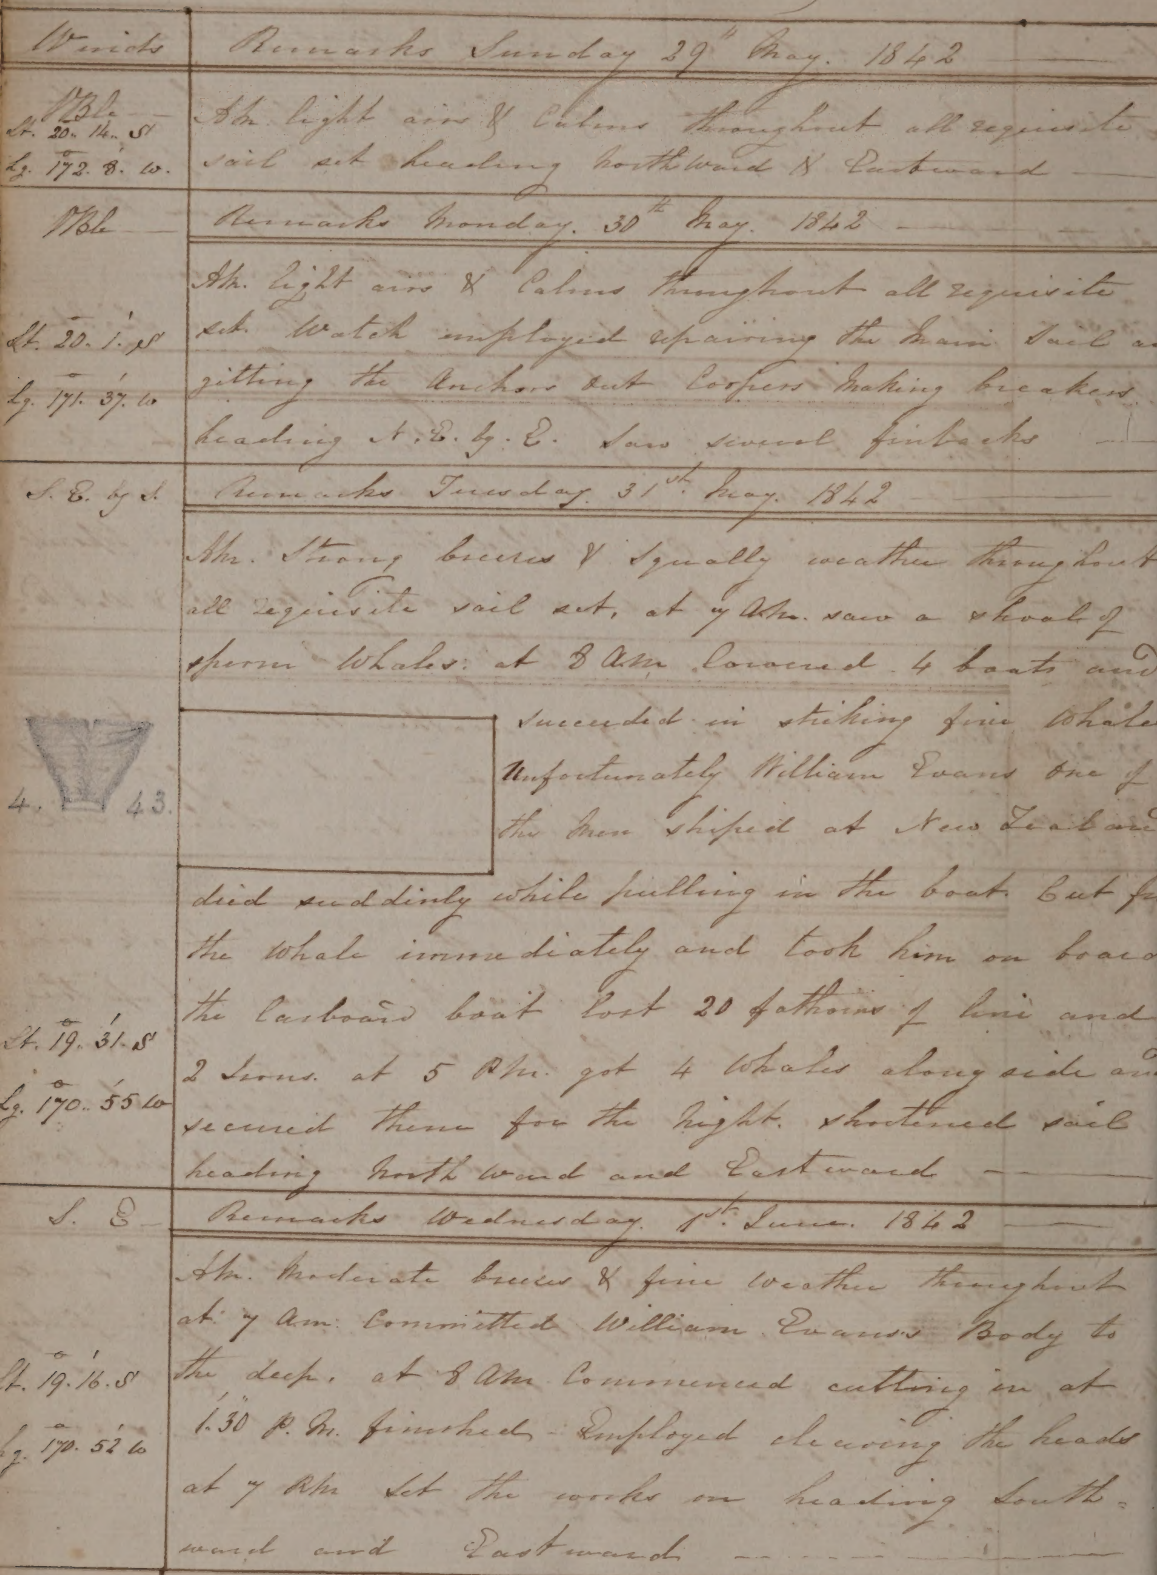 Winds Remarks Sunday 29th May. 1842
VBle Am. light airs & Calms throughout all requisite
Lt. 20.. 14.. S
Lg. 172. 8. w. sail set heading Northward & Eastward
VBle Remarks Monday. 30th May. 1842
Am. light airs & Calms throughout all requisite
Lt. 20. 1. S set. Watch employed repairing the Main Sail
Lg. 171. 37. w gitting the Anchors out Coopers Making breakers
heading N. E. by. E. Saw several finbacks
S. E. by S. Remarks Tuesday. 31st. May. 1842
Am. Strong breezes & Squally weather throughout
all requisite sail set, at 7 Am. saw a shoal of
sperm Whales: at 8 Am lowered 4 boats and
succeeded in striking five Whale
Unfortunately William Evans one of
4. 43. the Men shiped at New Zealand
died suddinly while pulling in the boat. Cut
the whale immediately and took him on board
the Larboard boat lost 20 fathoms of line and
Lt. 19. 31. S
2 Irons. at 5 PM. got 4 Whales along side
Lg. 170.. 55 w
secured them for the Night. shortened sail
heading North ward and Eastward
S. E Remarks Wednesday. 1st. June. 1842
Am. Moderate breezes & fine weather throughout
at 7 Am. Committed William Evans's Body to
Lt. 19. 16. S the deep. at 8 AM Commenced cutting in at
1.30 P. M. finished - Employed cleaving the heads
Lg. 170. 52 w
at 7 PM Set the works on heading South=
ward and Eastward